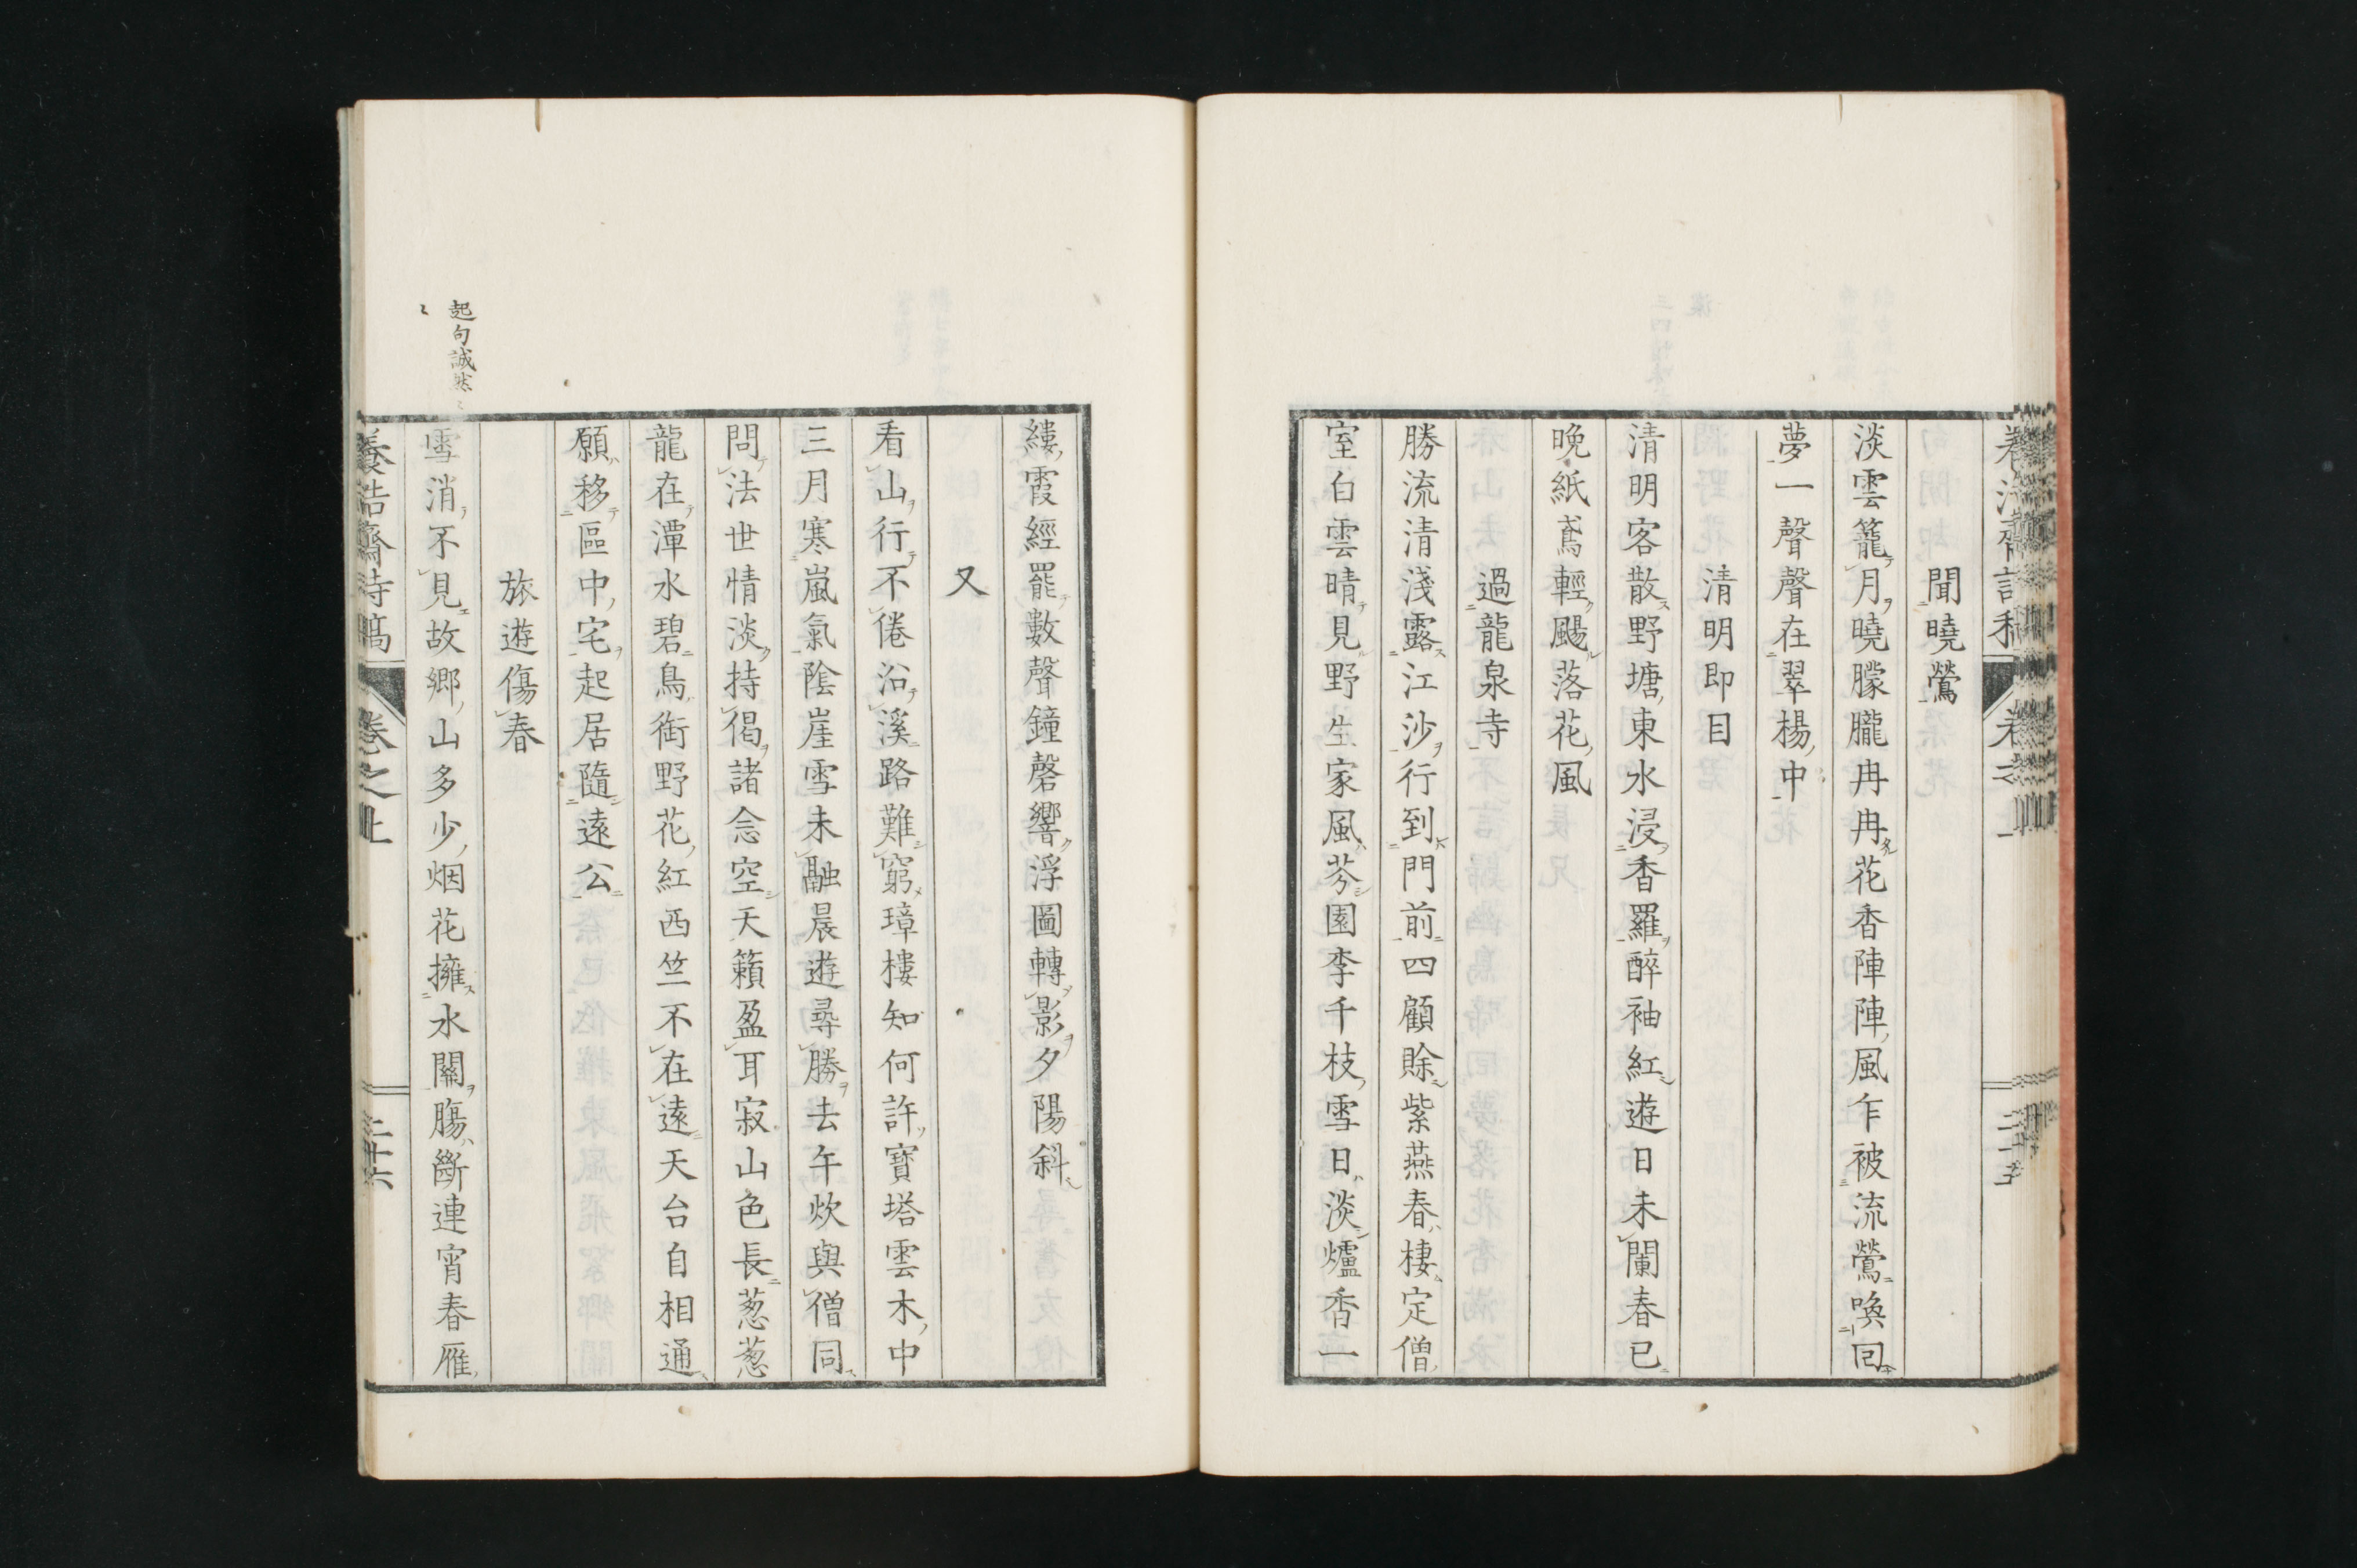 聞曉鶯
淡雲籠月曉朦朧冉冉花香陣陣風乍被流鶯喚回
夢一聲聲在翠楊中
清明即目
清明客散野塘東水浸香羅醉袖紅遊日未闌春已
晚紙鳶輕颺落花風
過龍泉寺
勝流清淺露江沙行到門前四顧賒紫燕春棲定僧
室白雲晴見野生家風芬園李千枝雪日淡爐香一
縷霞經罷數聲鐘磬響浮圖轉影夕陽斜
又
看山行不倦沿溪路難窮璋樓知何許寶塔雲木中
三月寒嵐氣陰崖雪未融晨遊尋勝去午炊與僧同
問法世情淡持偈諸念空天籟盈耳寂山色長葱葱
龍在潭水碧鳥銜野花紅西竺不在遠天台自相通
願移區中宅起居隨遠公
旅遊傷春
起句誠然
雪消不見故鄉山多少烟花擁水關腸斷連宵春雁
養浩齋詩稿 卷之上 二十六